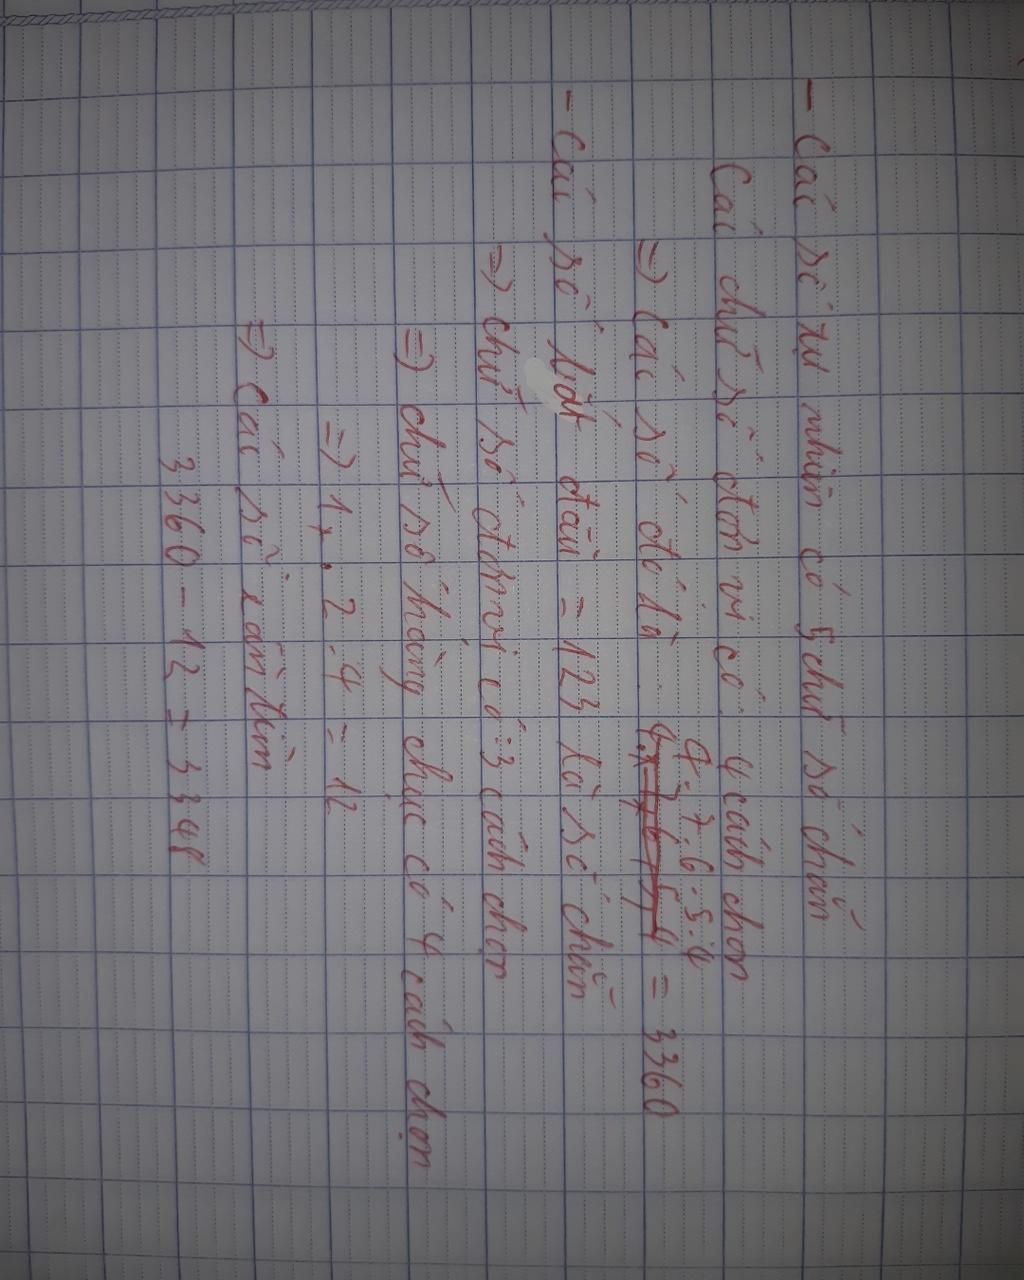 - Các số tự nhiên có 5 chữ số chẵn
Các chữ số đơn vị có 4 cách chọn
4.7.6.5.4
=> Các số đó là = 3360
- Các số bắt đầu = 123 là số chẵn
=> chữ số đơn vị có 3 cách chọn
=> chữ số hàng chục có 4 cách chọn
=> 1 . 2 . 4 = 12
=> Các số cần tìm
3360 - 12 = 3348